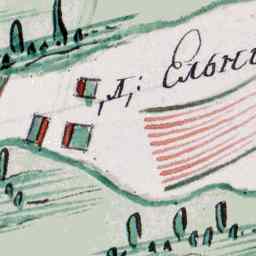 д: Ельн